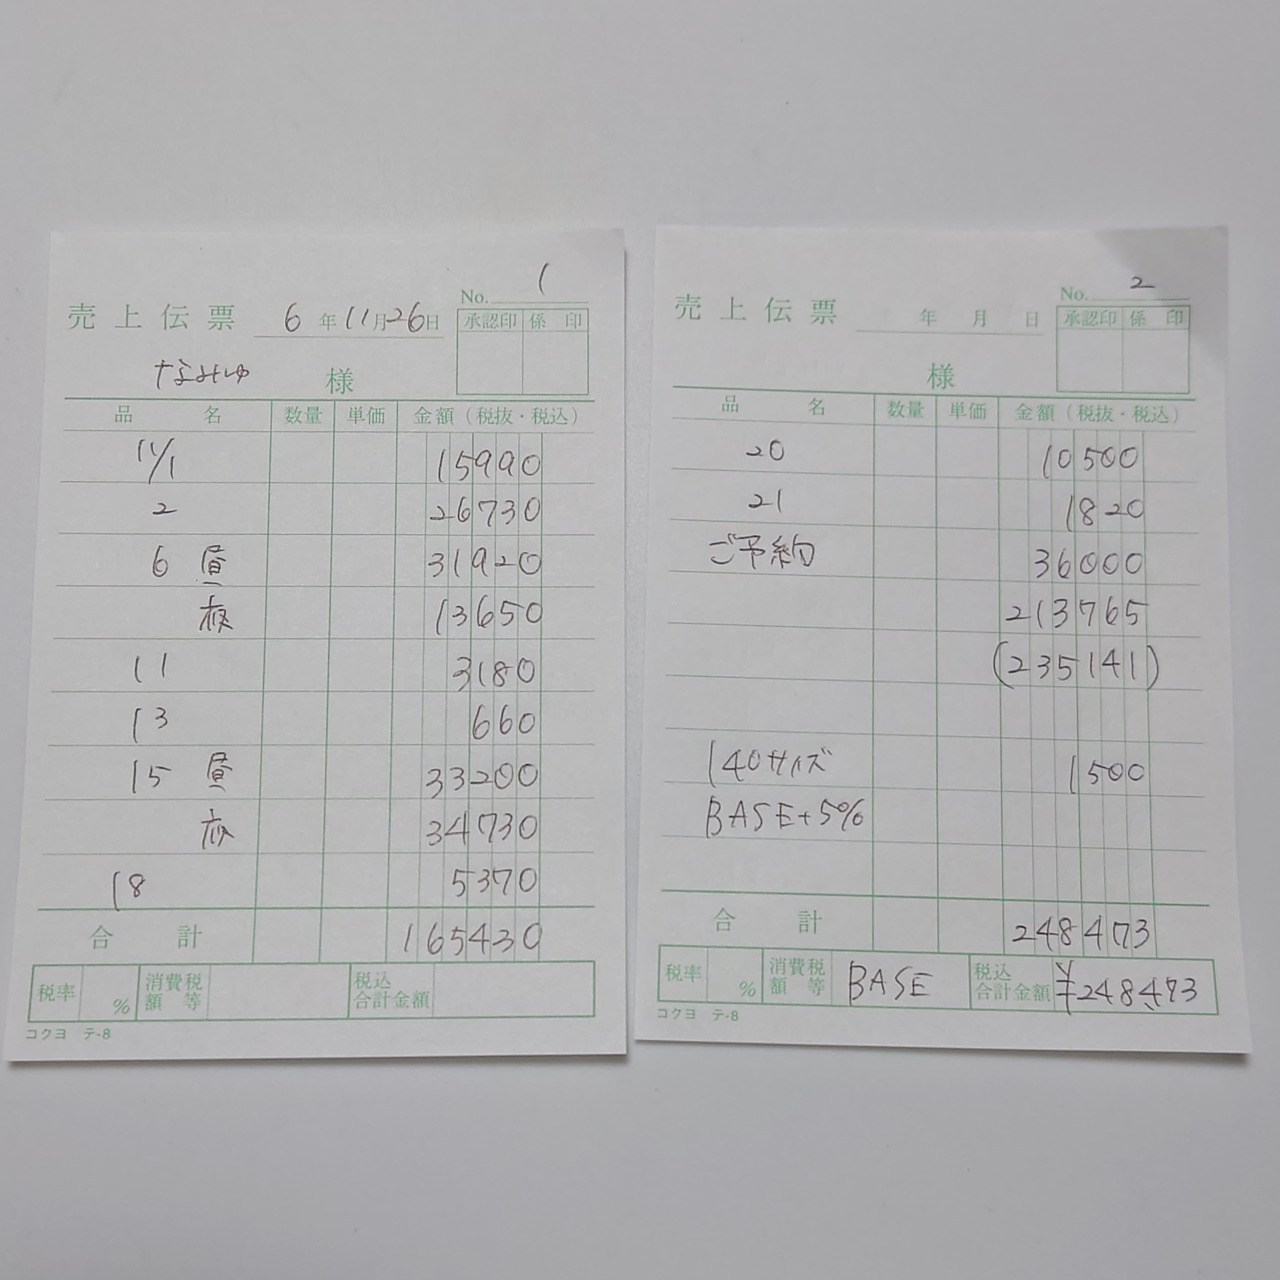 No. 1
売上伝票 6年11月26日
承認印 係印
なみゅ 様
品名 数量 単価 金額(税抜・税込)
11/1 15990
2 26730
6 昼 31920
夜 13650
11 3180
13 660
15 昼 33200
夜 34730
18 5370
合計 165430
税率 % 消費税額等 税込合計金額
コクヨ テ-8
No. 2
売上伝票 年 月 日
承認印 係印
様
品名 数量 単価 金額(税抜・税込)
20 10500
21 1820
ご予約 36000
213765
(235141)
140サイズ 1500
BASE+5%
合計 248473
税率 % 消費税額等 BASE 税込合計金額 ¥248,473
コクヨ テ-8